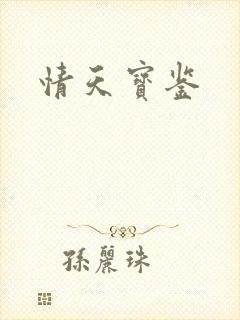 情天寶鉴
孫麗珠